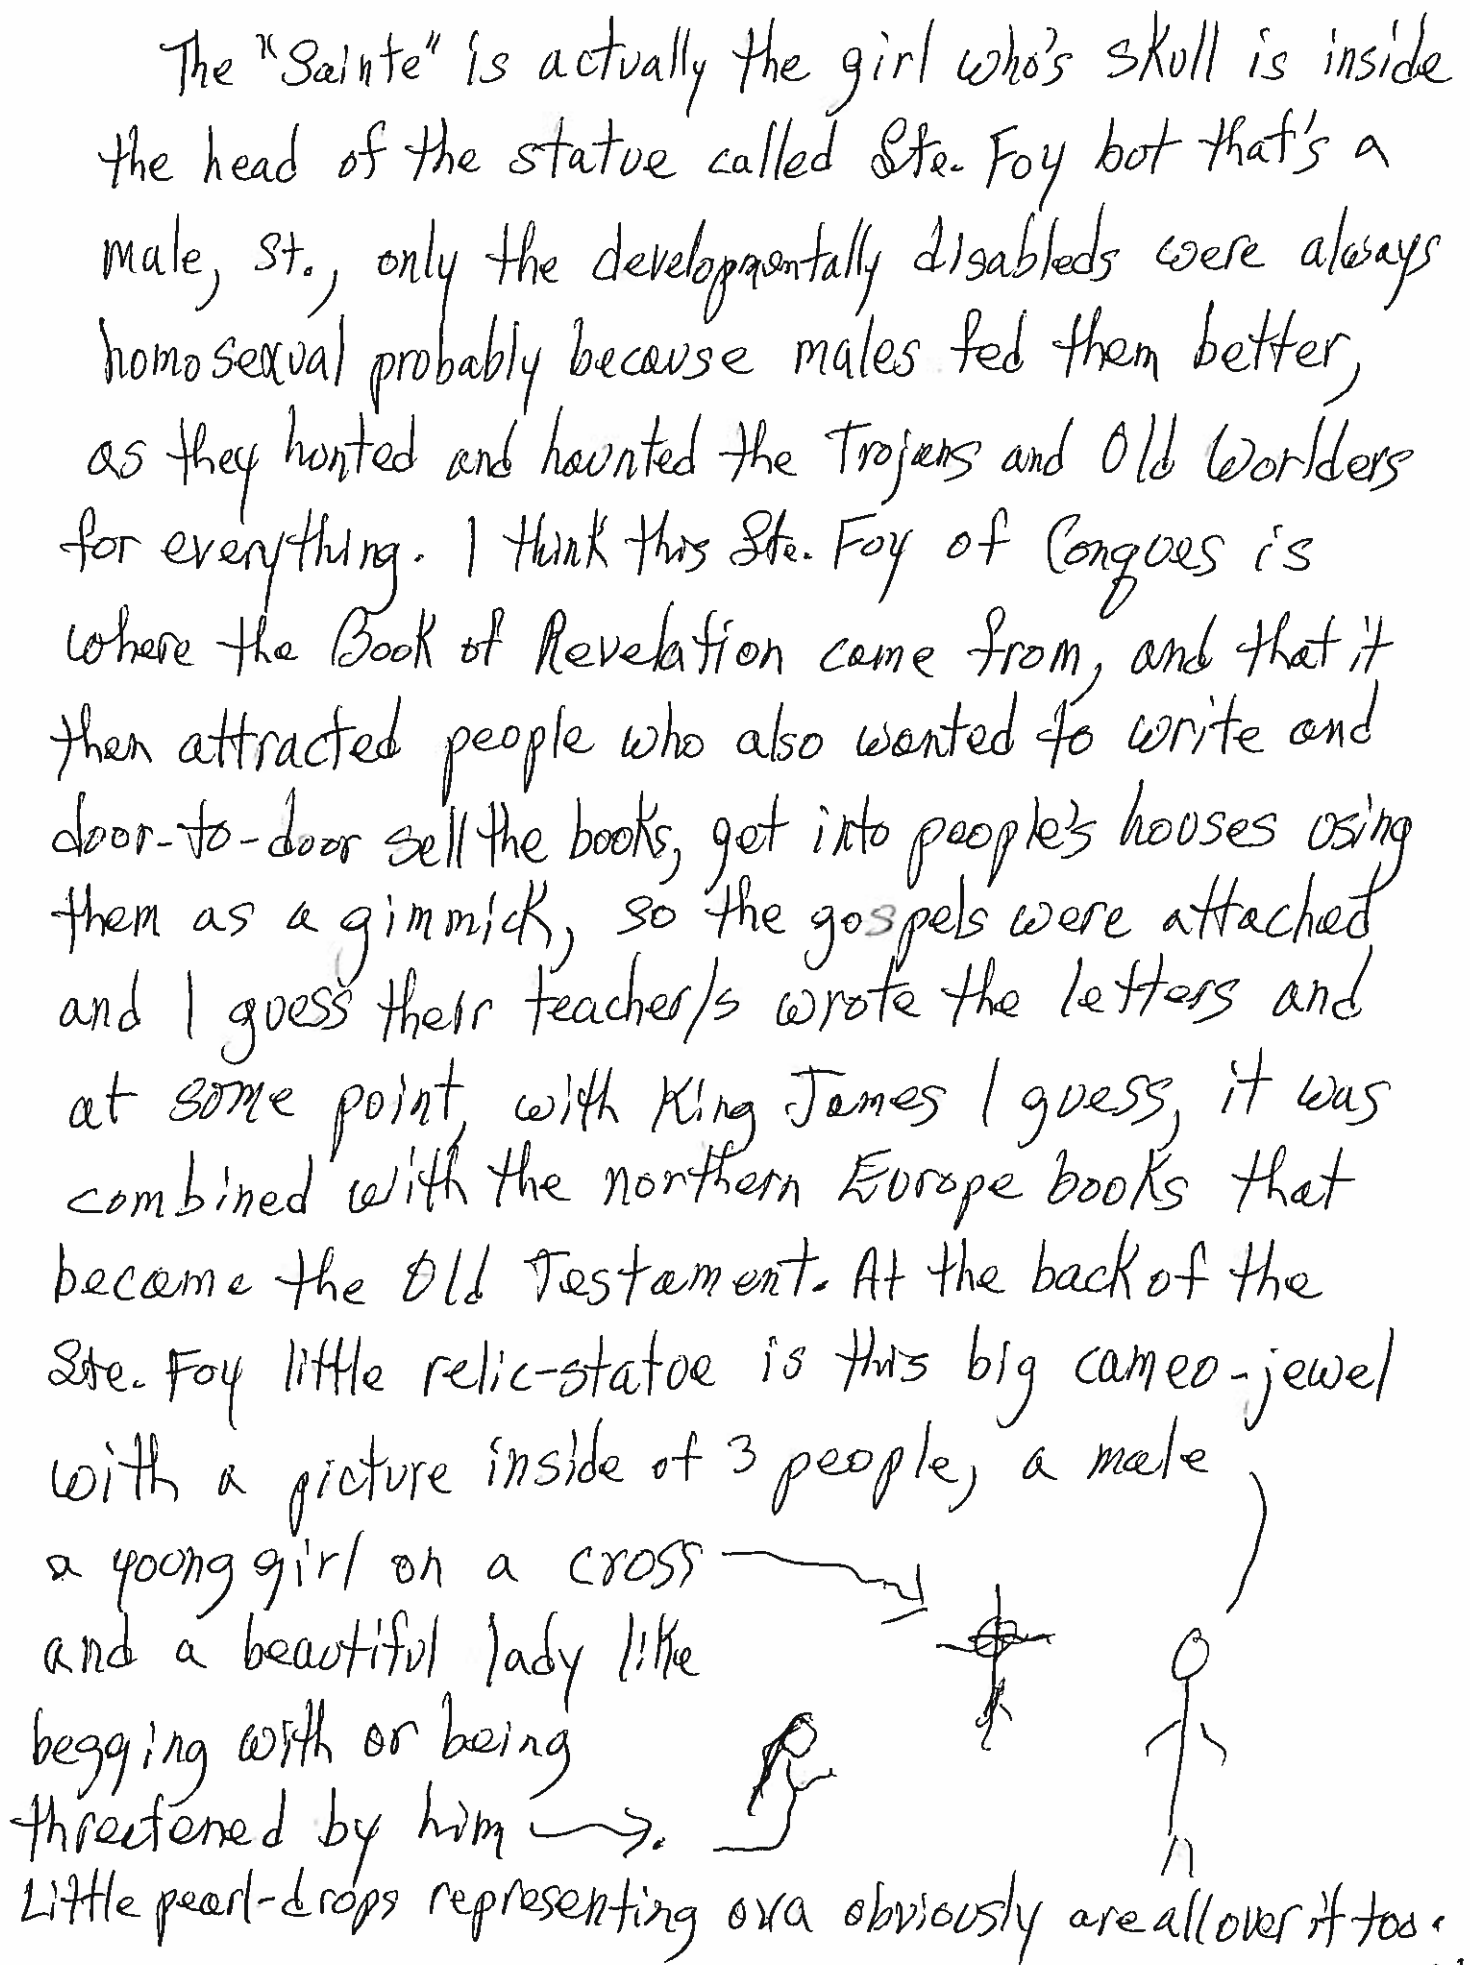 The "Sainte" is actually the girl who's skull is inside
the head of the statue called Ste. Foy but that's a
male, St., only the developmentally disableds were always
homosexual probably because males fed them better,
as they hunted and haunted the Trojans and Old Worlders
for everything. I think this Ste. Foy of Conques is
where the Book of Revelation came from, and that it
then attracted people who also wanted to write and
door-to-door sell the books, get into people's houses using
them as a gimmick, so the gospels were attached
and I guess their teacher/s wrote the letters and
at some point, with King James I guess, it was
combined with the northern Europe books that
became the Old Testament. At the back of the
Ste. Foy little relic-statue is this big cameo-jewel
with a picture inside of 3 people, a male
a young girl on a cross
and a beautiful lady like
begging with or being
threatened by him
Little pearl-drops representing ova obviously are all over it too.